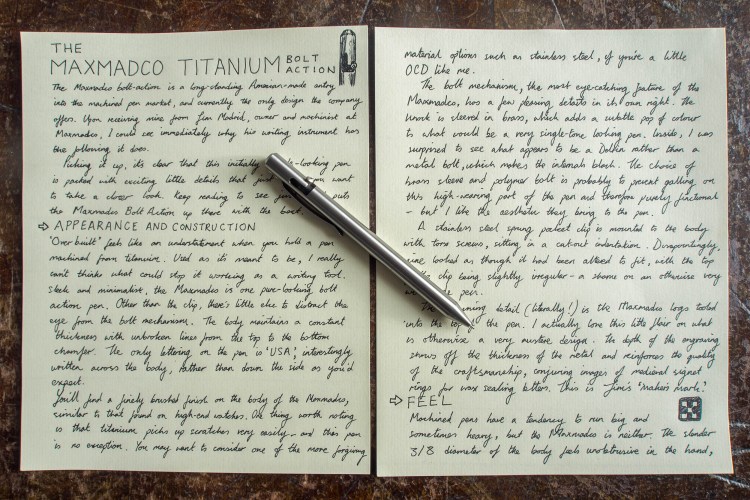 THE
MAXMADCO TITANIUM BOLT ACTION
The Maxmadco bolt-action is a long-standing American-made entry
into the machined pen market, and currently the only design the company
offers. Upon receiving mine from Jim Madrid, owner and machinist at
Maxmadco, I could see immediately why his writing instrument has
the following it does.
Picking it up, it's clear that this initially -looking pen
is packed with exciting little details that just you want
to take a closer look. Keep reading to see puts
the Maxmadco Bolt Action up there with the best.
⇨ APPEARANCE AND CONSTRUCTION
'Over built' feels like an understatement when you hold a pen
machined from titanium. Used as it's meant to be, I really
can't think what could stop it working as a writing tool.
Sleek and minimalist, the Maxmadco is one pure-looking bolt
action pen. Other than the clip, there's little else to distract the
eye from the bolt mechanism. The body maintains a constant
thickness with unbroken lines from the top to the bottom
chamfer. The only lettering on the pen is 'USA', interestingly
written across the body, rather than down the side as you'd
expect.
You'll find a finely brushed finish on the body of the Maxmadco,
similar to that found on high-end watches. One thing worth noting
is that titanium picks up scratches very easily - and this pen
is no exception. You may want to consider one of the more forgiving
material options such as stainless steel, if you're a little
OCD like me.
The bolt mechanism, the most eye-catching feature of the
Maxmadco, has a few pleasing details in its own right. The
knock is sleeved in brass, which adds a subtle pop of colour
to what would be a very single-tone looking pen. Inside, I was
surprised to see what appears to be a Delrin rather than a
metal bolt, which makes the internals black. The choice of
brass sleeve and polymer bolt is probably to prevent galling on
this high-wearing part of the pen and therefore purely functional
- but I like the aesthetic they bring to the pen.
A stainless steel spring pocket clip is mounted to the body
with torx screws, sitting in a cut-out indentation. Disappointingly,
mine looked as though it had been altered to fit, with the top
of the clip being slightly irregular - a shame on an otherwise very
pen.
The detail (literally!) is the Maxmadco logo tooled
into the top of the pen. I actually love this little flair on what
is otherwise a very austere design. The depth of the engraving
shows off the thickness of the metal and reinforces the quality
of the craftsmanship, conjuring images of medieval signet
rings for wax sealing letters. This is Jim's 'maker's mark'.
⇨ FEEL
Machined pens have a tendency to run big and
sometimes heavy, but the Maxmadco is neither. The slender
3/8 diameter of the body feels unobtrusive in the hand,